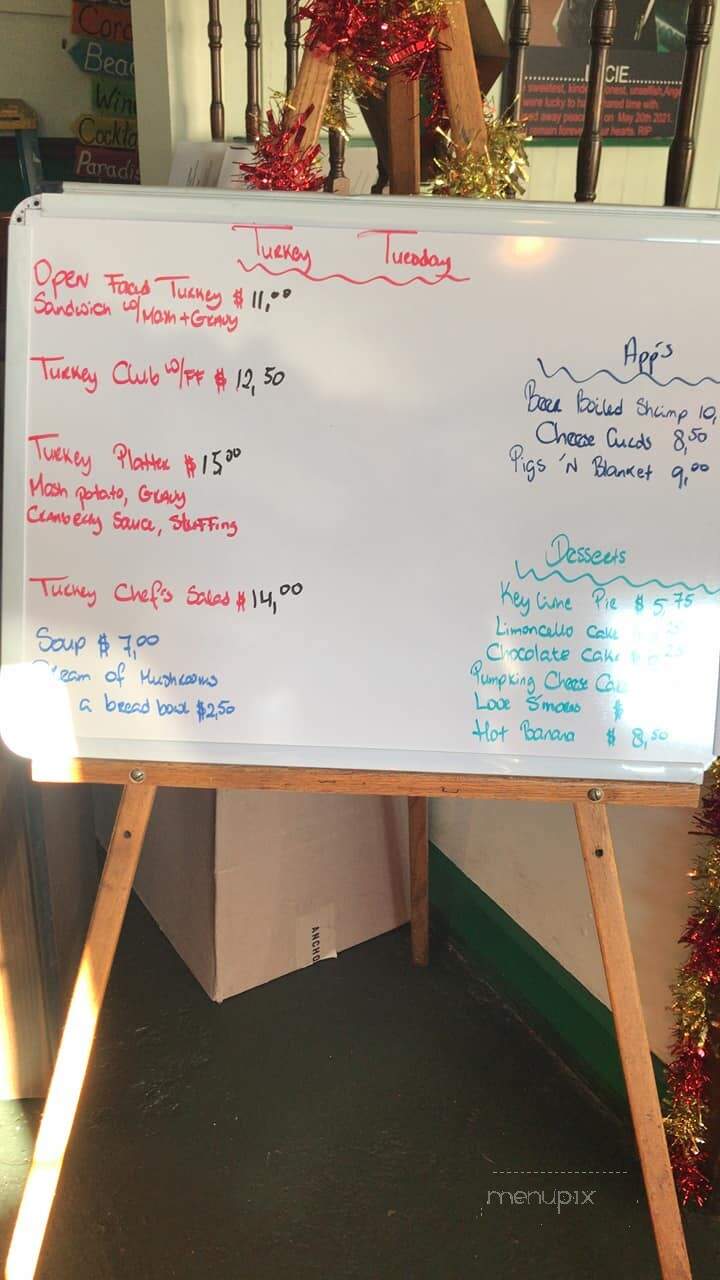 Coro
Beac
Wine
Cockta
Paradis
CIE....
sweetest, kind onest, unselfish, Ange
were lucky to ha hared time with.
ed away peace on May 20th 2021.
emain forever r hearts. RIP
Turkey Tuesday
Open Faced Turkey $ 11,00
Sandwich w/Mash + Gravy
Turkey Club w/FF $ 12,50
Turkey Platter $ 15.00
Mash potato, Gravy
Cranberry Sauce, Stuffing
Turkey Chef's Salad $ 14,00
Soup $ 7,00
ream of Mushrooms
a bread bowl $2,50
App's
Beer Boiled Shrimp 10,
Cheese Curds 8,50
Pigs 'N Blanket 9,00
Desserts
Key Lime Pie $ 5,75
Limoncello Cake
Chocolate Cake
Pumpking Cheese Cake
S'mores $
Hot Banana $ 8,50
ANCHO
menupix